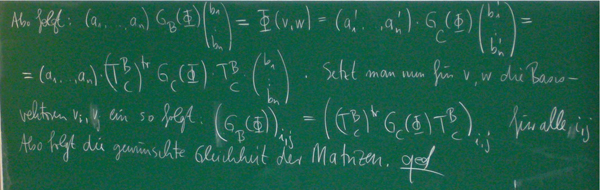 Also folgt: (a₁ ... aₙ) G_B(Φ) (b₁ ⋮ bₙ) = Φ(v,w) = (a₁' ... aₙ') · G_C(Φ) (b₁' ⋮ bₙ') =
= (a₁ ... aₙ) · (T_C^B)^tr G_C(Φ) · T_C^B · (b₁ ⋮ bₙ) . Setzt man nun für v, w die Basis-
vektoren vᵢ, ein so folgt. (G_B(Φ))_{i,j} = ((T_C^B)^tr G_C(Φ) T_C^B)_{i,j} für alle i,j
Also folgt die gewünschte Gleichheit der Matrizen. qed